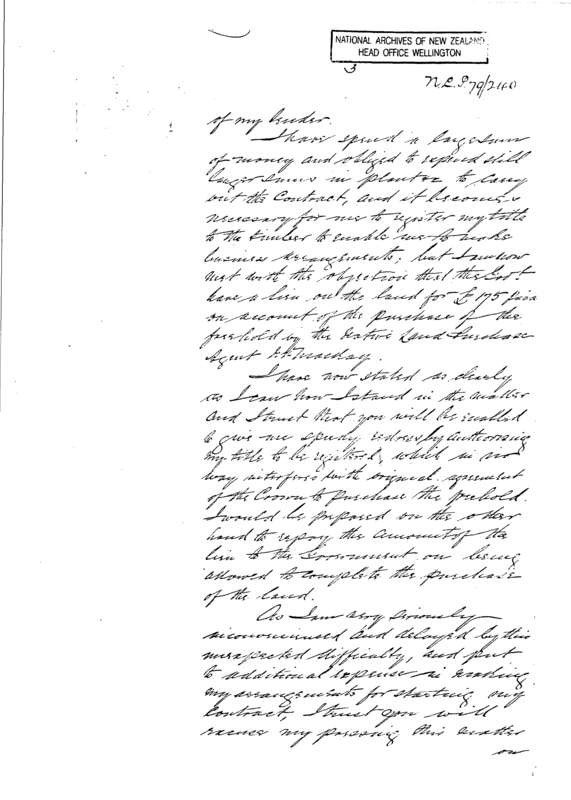 NATIONAL ARCHIVES OF NEW ZEALAND
HEAD OFFICE WELLINGTON
3
N.L.P. 79/2160
of my tender.
I have spend a large sum
of money and obliged to expend still
larger sums in plant &c to carry
out the Contract, and it becomes
necessary for me to register my title
to the timber to enable me to make
business arrangements; but I am now
met with the objection that the Govt
have a lien on the land for £ 175 paid
on account of the purchase of the
freehold by the Native Land Purchase
Agent
I have now stated as clearly
as I can how I stand in the matter
and I trust that you will be enabled
to give me speedy redress by authorising
my title to be registered, which in no
way interferes with original agreement
of the Crown to purchase the freehold.
I would be prepared on the other
hand to repay the amount of the
lien to the Government on being
allowed to complete the purchase
of the land.
As I am very seriously
inconvenienced and delayed by this
unexpected difficulty, and put
to additional expense in making
my arrangements for starting my
Contract, I trust you will
excuse my pressing this matter
on